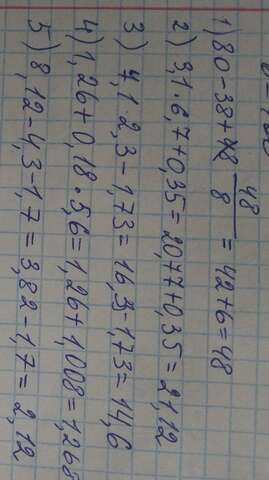 1) 80-38+48/8 = 42+6=48
2) 3,1·6,7+0,35=20,77+0,35=21,12
3) 4,1·2,3-1,73=16,3-1,73=14,6
4) 1,26+0,18·5,6=1,26+1,008=1,268
5) 8,12-4,3-1,7=3,82-1,7=2,12